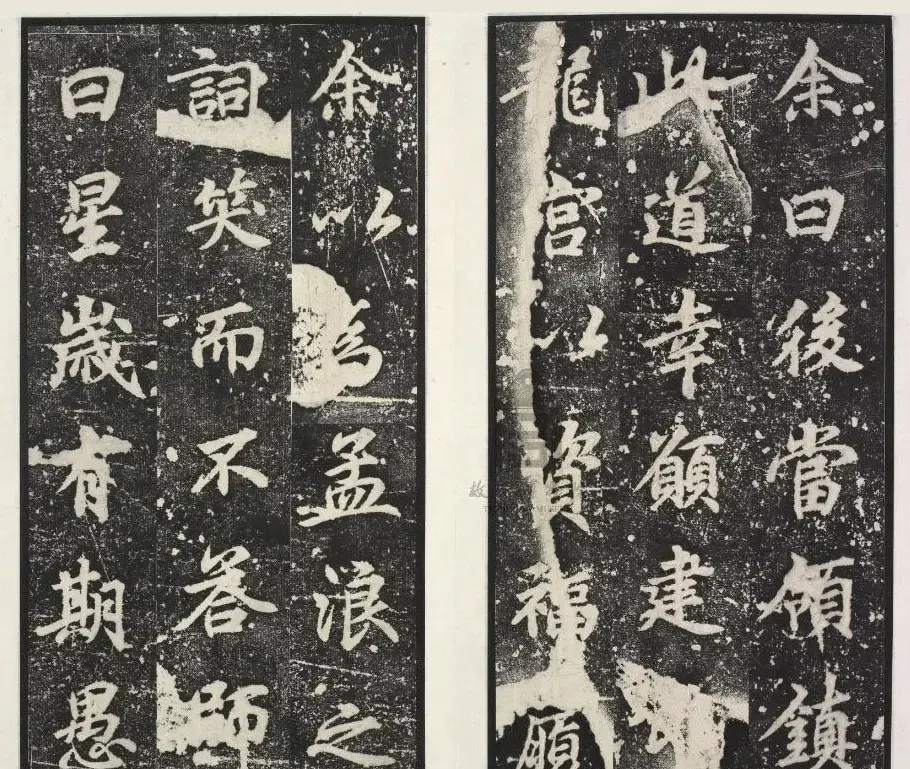 余曰後當領鎮
此道幸願建
龍宮以資福願
余以為孟浪之
詞笑而不荅師
曰星歲有期愚